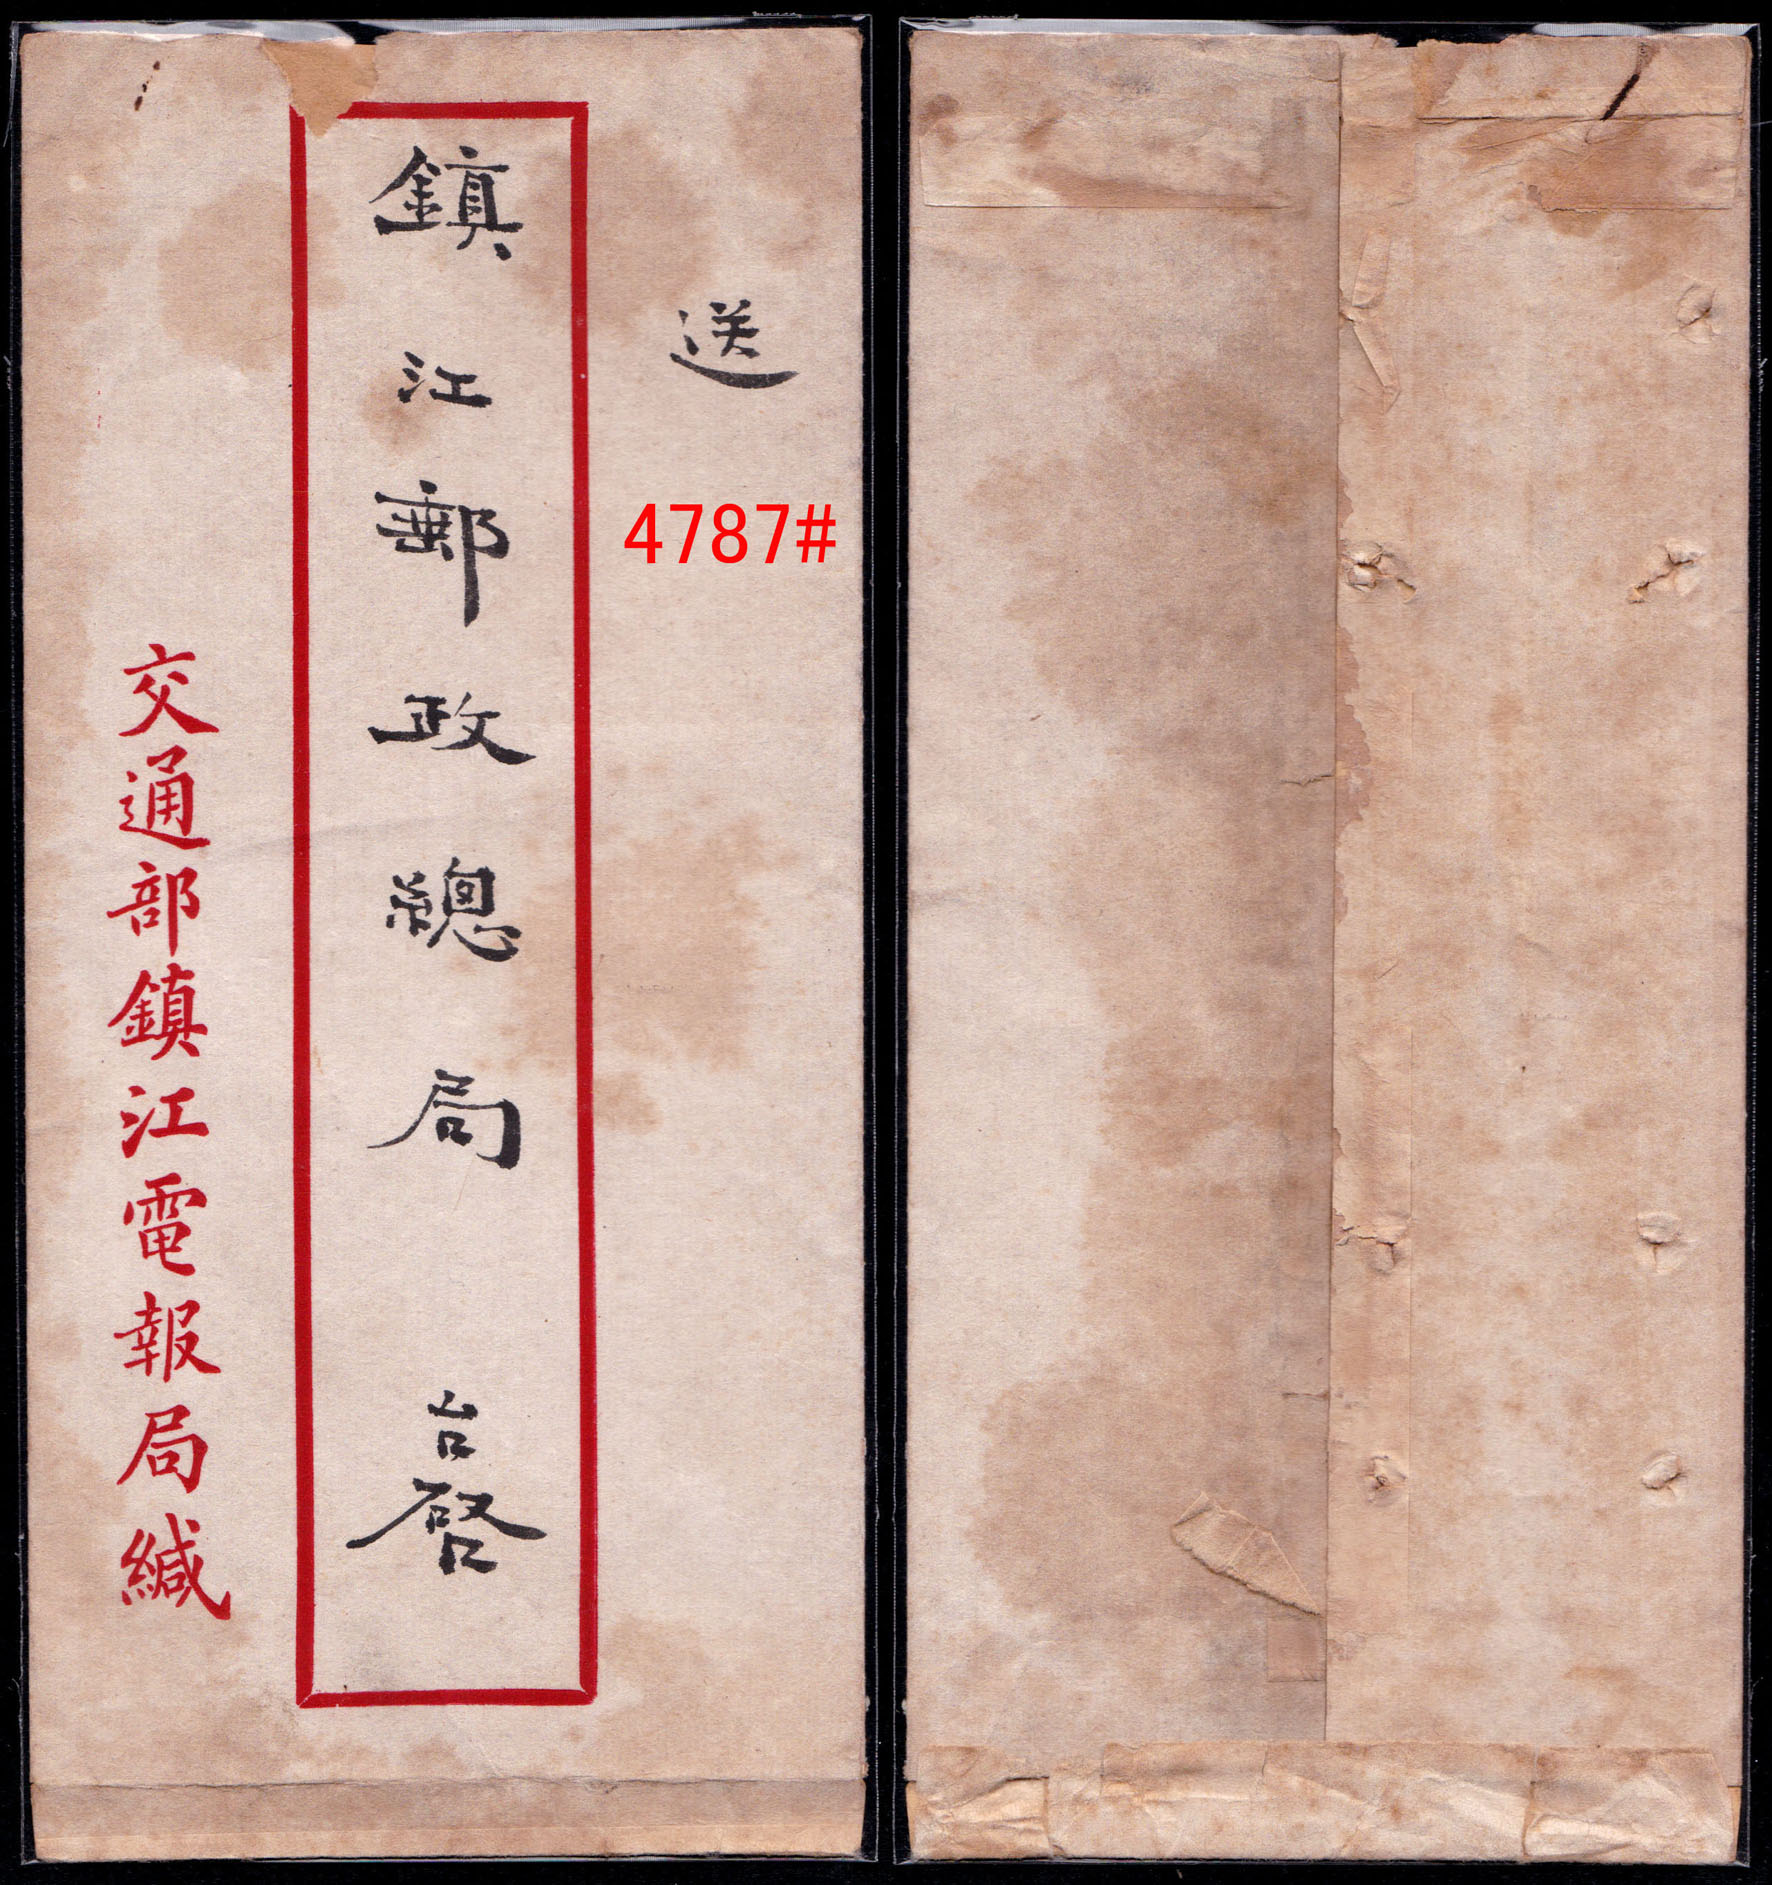 送
4787#
鎮江郵政總局 台啓
交通部鎮江電報局緘